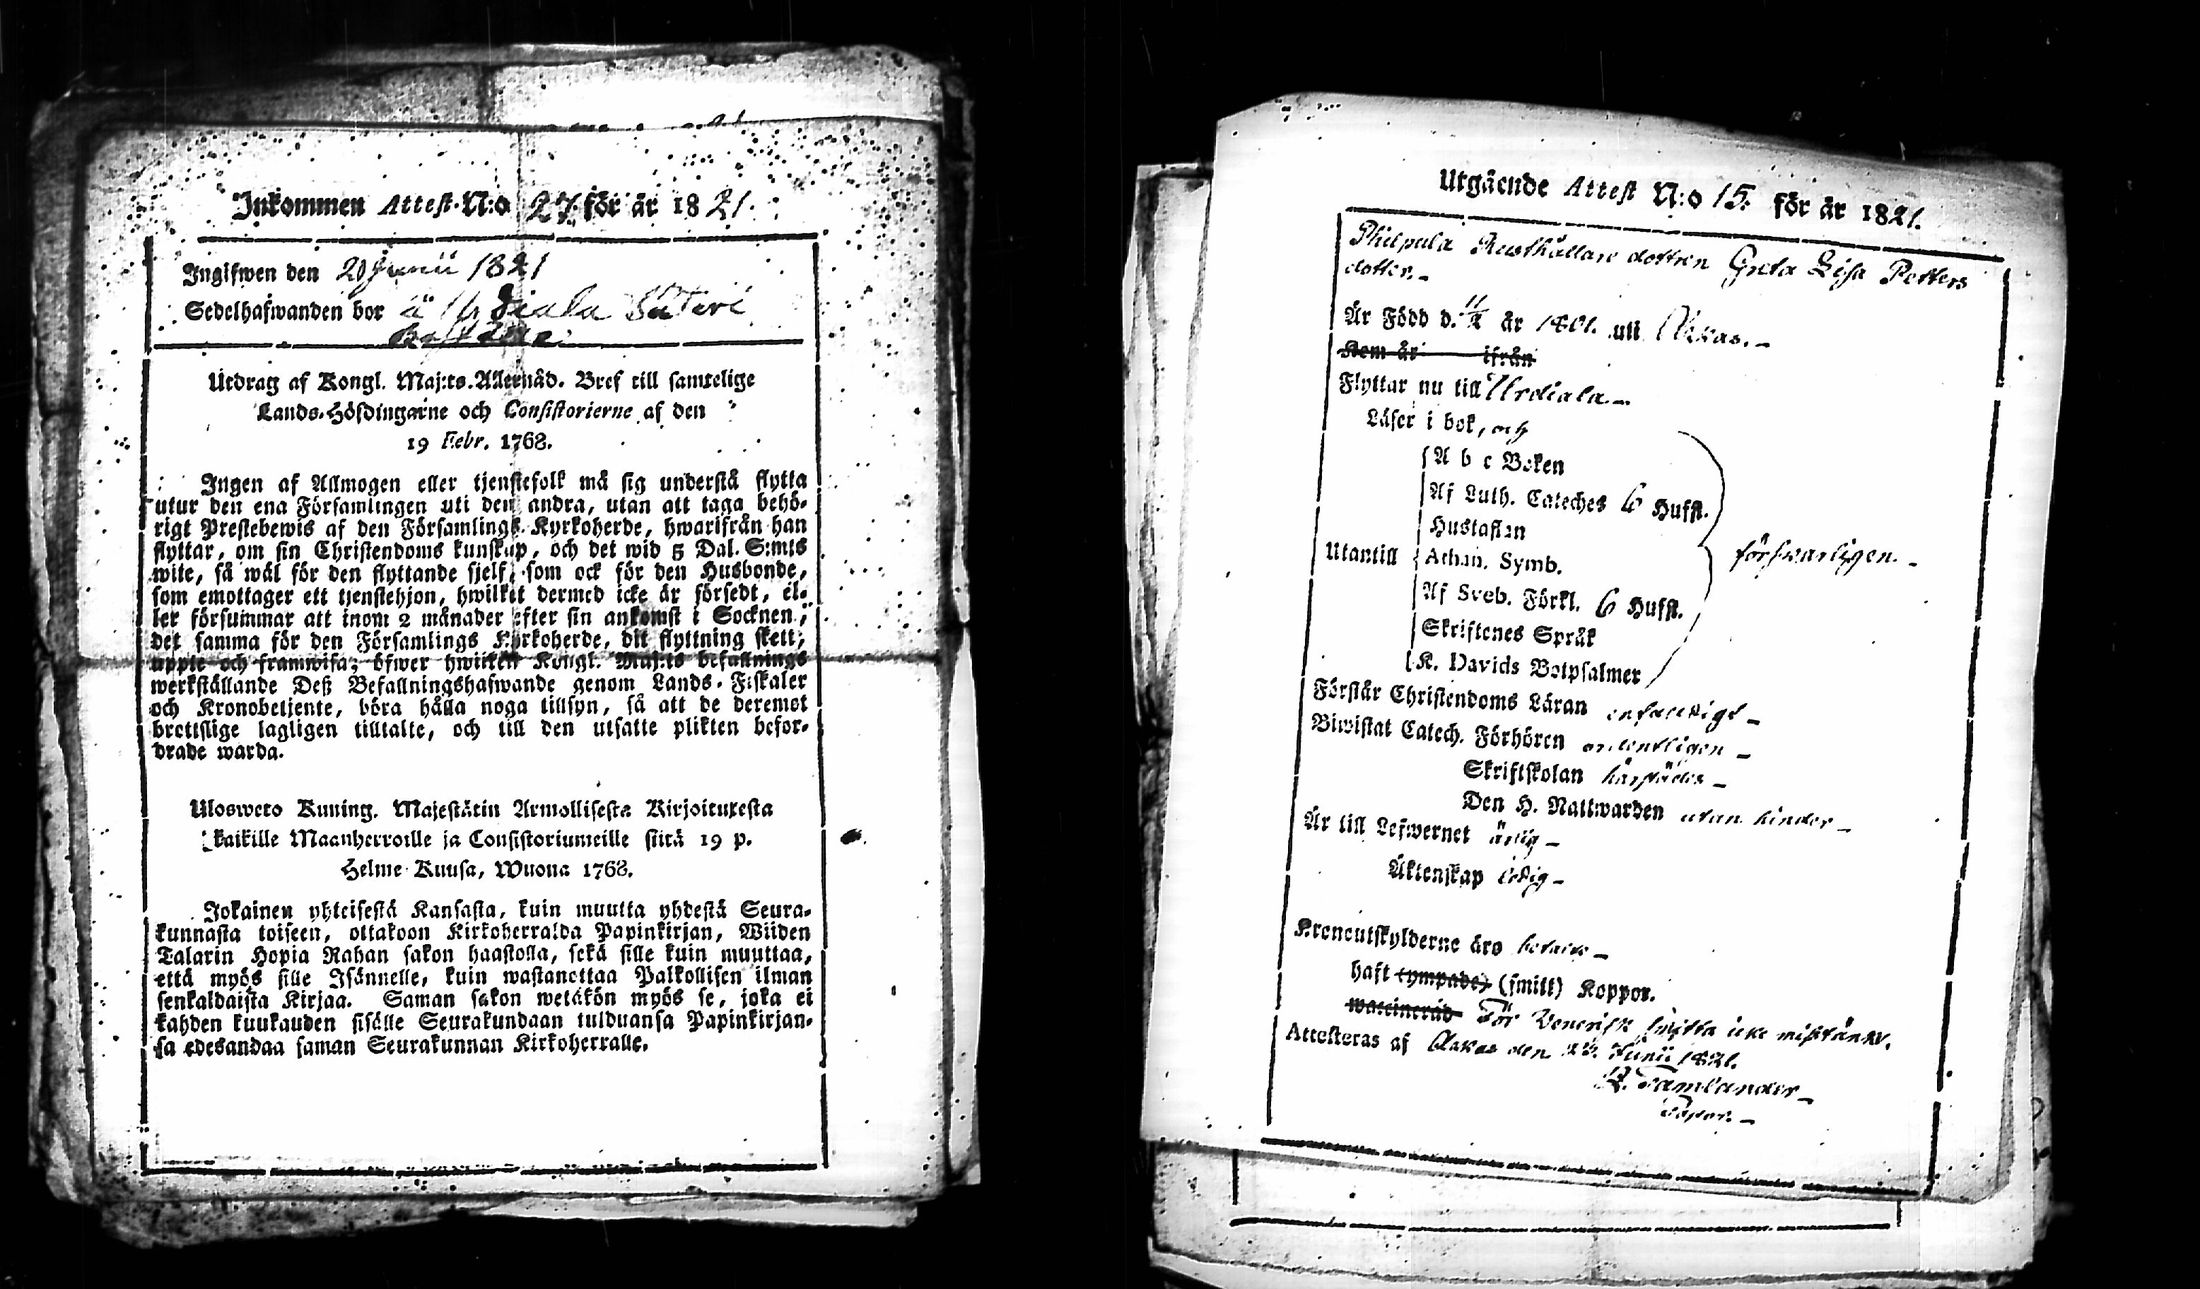 Inkommen Attest N:o 27. för år 1821.
Ingifwen den 20 Junii 1821
Sedelhafwanden bor å Urdiala Säteri
Utdrag af Kongl. Maj:ts Allernåd. Bref till samtelige
Lands-Höfdingarne och Consistorierne af den
19 Febr. 1768.
Ingen af Allmogen eller tjenstefolk må sig understå flytta
utur den ena Församlingen uti den andra, utan att taga behö-
rigt Prestebewis af den Församlings Kyrkoherde, hwarifrån han
flyttar, om sin Christendoms kunskap, och det wid 5 Dal. S:mts
wite, så wäl för den flyttande sjelf, som ock för den Husbonde,
som emottager ett tjenstehjon, hwilket dermed icke är försedt, el-
ler försummar att inom 2 månader efter sin ankomst i Socknen,
det samma för den Församlings Kyrkoherde, dit flyttning skett,
uppte och framwisa; öfwer hwilken Kongl. Maj:ts befallnings
werkställande Deß Befallningshafwande genom Lands-Fiskaler
och Kronobetjente, böra hålla noga tillsyn, så att de deremot
brottslige lagligen tilltalte, och till den utsatte plikten befor-
drade warda.
Uloswето Kuning. Majestätin Armollisesta Kirjoituxesta
kaikille Maanherroille ja Consistoriumeille siitä 19 p.
Helme Kuusa, Wuona 1768.
Jokainen yhteisestä Kansasta, kuin muutta yhdestä Seura-
kunnasta toiseen, ottakoon Kirkoherralda Papinkirjan, Wiiden
Talarin Hopia Rahan sakon haastolla, sekä sille kuin muuttaa,
että myös sille Isännelle, kuin wastanottaa Palkollisen ilman
senkaldaista Kirjaa. Saman sakon wetäkön myös se, joka ei
kahden kuukauden sisälle Seurakundaan tulduansa Papinkirjan-
sa edesandaa saman Seurakunnan Kirkoherralle.
Utgående Attest N:o 15. för år 1821.
Philpula Rusthållare dottren Greta Lisa Petters
dotter.-
Är Född d. 11/2 år 1801. uti Akkas.-
Kom år ifrån
Flyttar nu till Urdiala.-
Läser i bok, och
A b c Boken
Af Luth. Cateches 6 Hufst.
Hustaflan
Utantill
Athan. Symb.
försvarligen.-
Af Sveb. Förkl. 6 Hufst.
Skriftenes Språk
K. Davids Botpsalmer
Förstår Christendoms Läran enfaldigt-
Biwistat Catech. Förhören ordentligen-
Skriftskolan härstädes-
Den H. Nattwarden utan hinder-
Är till Lefwernet ärlig-
Äktenskap ledig-
Kronoutskylderne äro betalte-
haft (ympade) (smitt) Koppor.
waccinerad För Venerisk smitta icke misstänkt.
Attesteras af Akkas den Junii 1821.
Tamlander-
Pastor.-